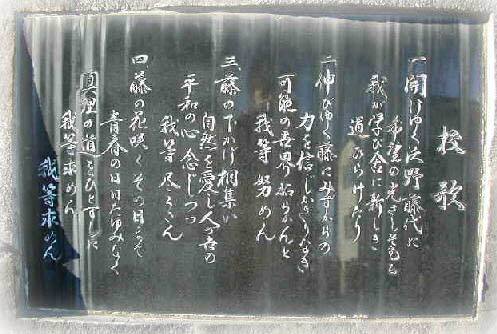 校歌
一 開けゆく広野藤代に
希望の光さしそめて
我が学び舎に新しき
道ひらけたり
二 伸びゆく藤にみずからの
力を信じかぎりなき
可能の世界拓かんと
我等努めん
三 藤の下かげ相集い
自然を愛し人の世の
平和の心念じつつ
我等尽くさん
四 藤の花咲くその日まで
青春の日日たゆみなく
真理の道をひとすじに
我等求めん
我等求めん